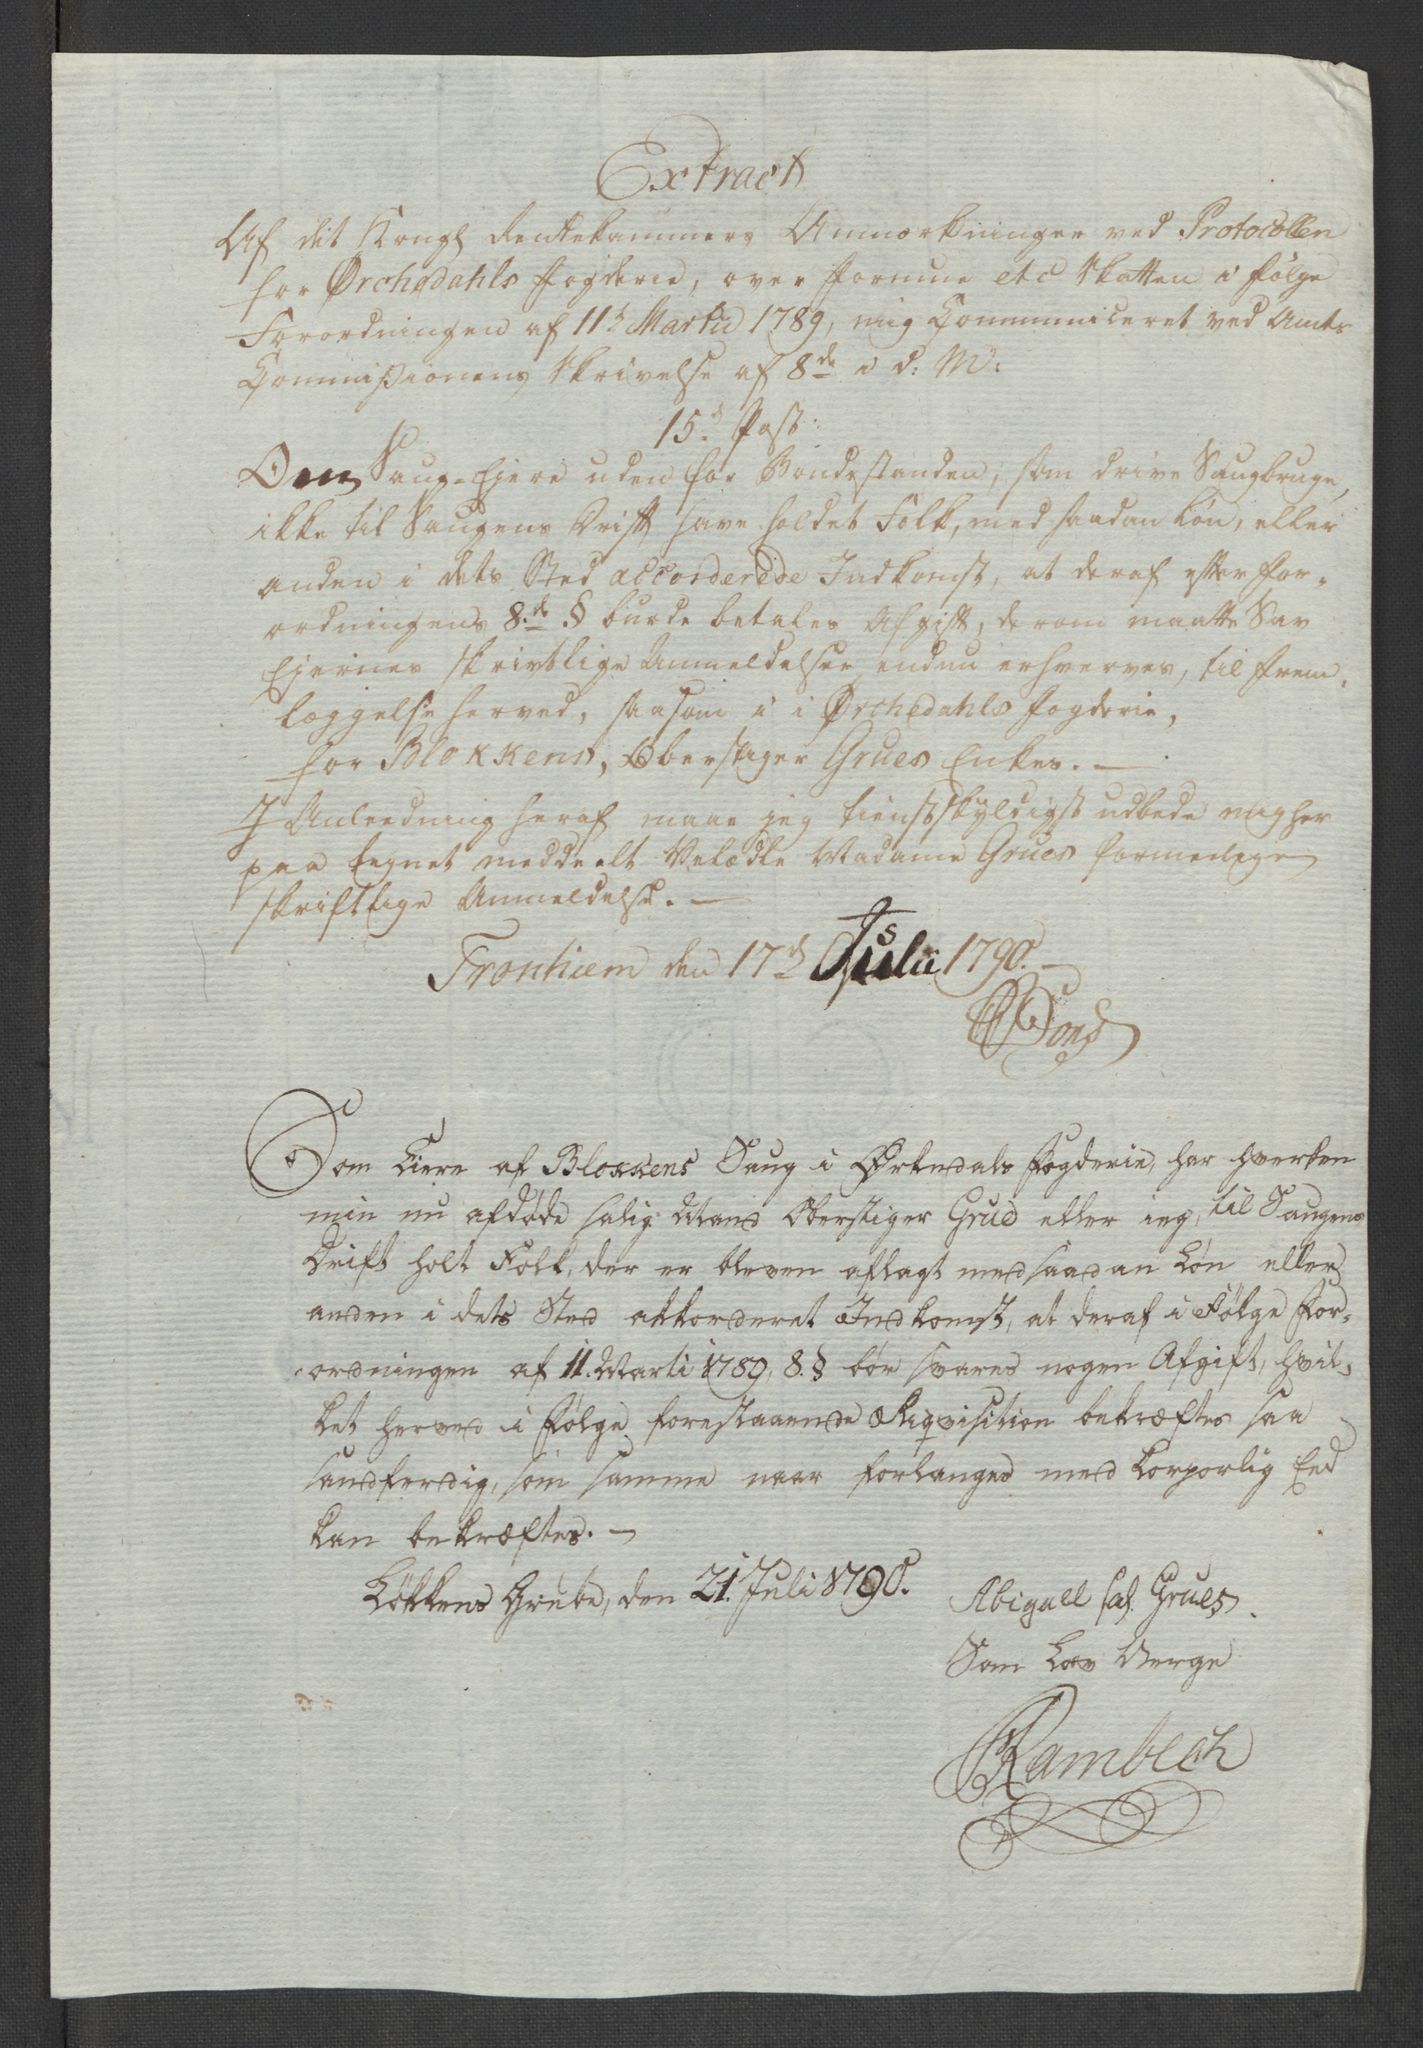 Extract
Af det Kongl Rentekammers Anmærkninger ved Protocollen
for Ørchedahls fogderie, over formue etc Skatten i følge
Forordningen af 11t Martii 1789, mig Communiceret ved Amts
Commissionens Skrivelse af 8de i d: M:
15d Post:
Om Saug-Ejere uden for Bondestanden, som drive Saugbruge,
ikke til Saugens Drift have holdet Folk, med saadan Løn, eller
anden i dets Sted accorderede Indkomst, at deraf efter For-
ordningens 8de § burde betales Afgift, derom maatte Sav
Ejernes skrivtlige Anmeldelser endnu erhverves, til frem-
læggelse herved, saasom i i Ørchedahls fogderie,
for Blokkens, Oberstiger Grues Enkes. —
I Anleedning heraf maae jeg tienstskyldigst udbede mig her
paa Tegnet meddeelt Velædle Madame Grues formenlige
skriftlige Anmeldelse. —
Tronhiem den 17d Julii 1790. —
Som Eiere af Blokkens Saug i Ørkedals Fogderie, har hverken
min nu afdøde salig Mand Oberstiger Grue eller ieg, til Saugens
Drift holt Folk, der er bleven aflagt med saadan Løn eller
anden i dets Sted akkorderet Indkomst, at deraf i Følge For-
ordningen af 11. Marti 1789, 8. § bør svares nogen Afgift, hvil-
ket herved i Følge forestaaende Reqvisition bekræftes saa
sandferdig, som samme naar forlanges med korporlig Eed
kan bekræftes. —
Løkkens Grube, den 21. Juli 1790.
Abigael sal. Grues
Som Lav Verge
Rambech